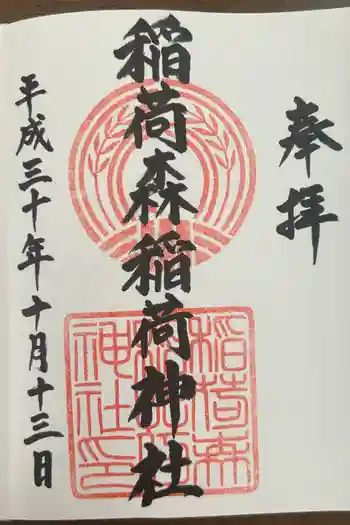 奉拝
稲荷森稲荷神社
平成三十年十月十三日
稲荷森
稲荷
神社印